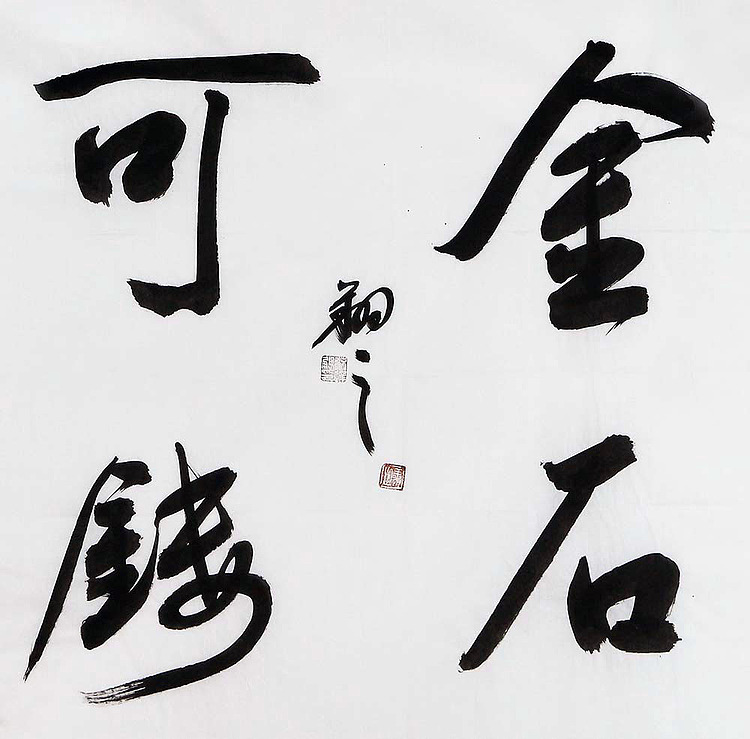 金石
可鏤
翔之